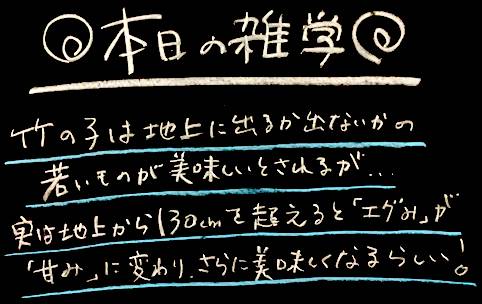 本日の雑学
竹の子は地上に出るか出ないかの
若いものが美味しいとされるが...
実は地上から130cmを超えると「エグみ」が
「甘み」に変わり、さらに美味しくなるらしい!